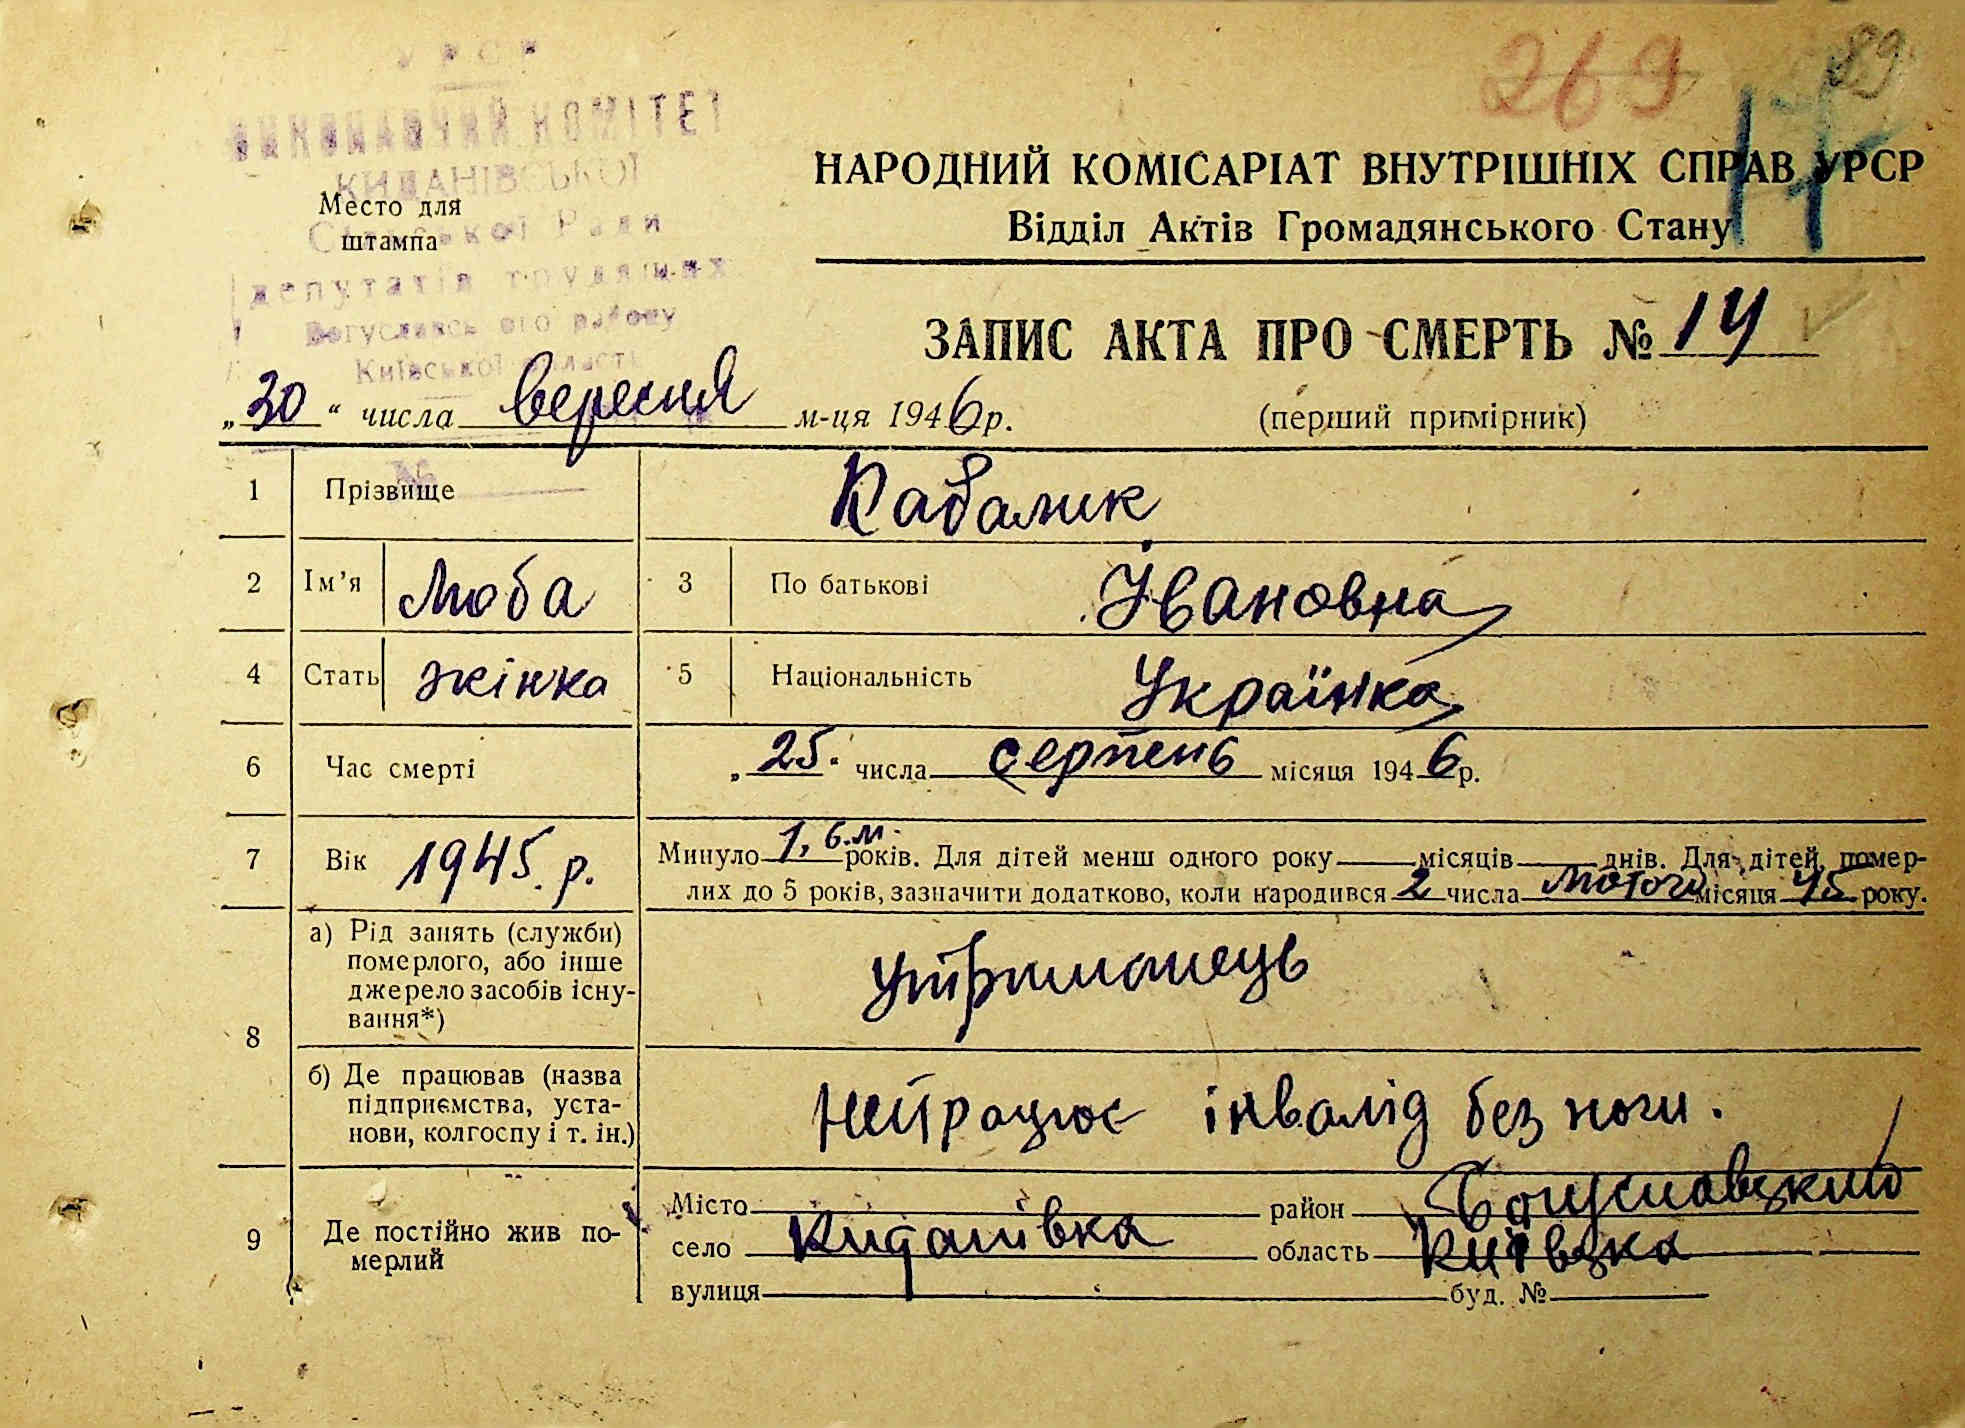 269
89
УРСР
ВИКОНАВЧИЙ КОМІТЕТ
КИДАНІВСЬКОЇ
Сільської Ради
депутатів трудящих
Богуславського району
Київської області
№
Место для
штампа
НАРОДНИЙ КОМІСАРІАТ ВНУТРІШНІХ СПРАВ УРСР
Відділ Актів Громадянського Стану
ЗАПИС АКТА ПРО СМЕРТЬ № 14
„30“ числа вересня м-ця 1946 р.
(перший примірник)
1 Прізвище Кабалик
2 Ім’я Люба 3 По батькові Івановна
4 Стать жінка 5 Національність Українка
6 Час смерті „25. числа серпень місяця 1946 р.
7 Вік 1945 р. Минуло 1, 6.м. років. Для дітей менш одного року місяців днів. Для дітей, помер-
лих до 5 років, зазначити додатково, коли народився 2 числа лютого місяця 45 року.
8
а) Рід занять (служби)
померлого, або інше
джерело засобів існу-
вання*)
утриманець
б) Де працював (назва
підприємства, уста-
нови, колгоспу і т. ін.)
непрацює інвалід без ноги.
9 Де постійно жив по-
мерлий
Місто район Богуславський
село Киданівка область Київська
вулиця буд. №